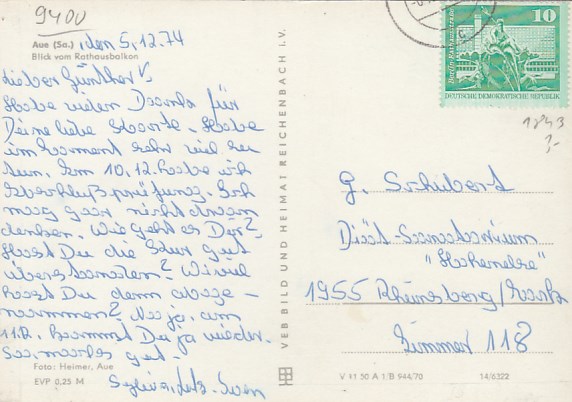 9400
Aue (Sa.), den 5.12.74
Blick vom Rathausbalkon
Lieber Günther!
Habe vielen Dank für
Deine liebe Karte. Habe
im Moment sehr viel zu
tun. Am 10.12. habe ich
Abschlußprüfung. Ich
mag gar nicht dran
denken. Wie geht es Dir?
Hast Du die Kur gut
überstanden? Wieviel
hast Du denn abge-
nommen? Na ja, am
11.12. kommst Du ja wieder.
Foto: Heimer, Aue
EVP 0,25 M
VEB BILD UND HEIMAT REICHENBACH I. V.
10
Berlin-Rathausstraße
DEUTSCHE DEMOKRATISCHE REPUBLIK
1843
G. Schubert
Diät-Sanatorium
"Hohenelse"
1955 Rheinsberg/Mark
Zimmer 118
V 11 50 A 1/B 944/70 14/6322